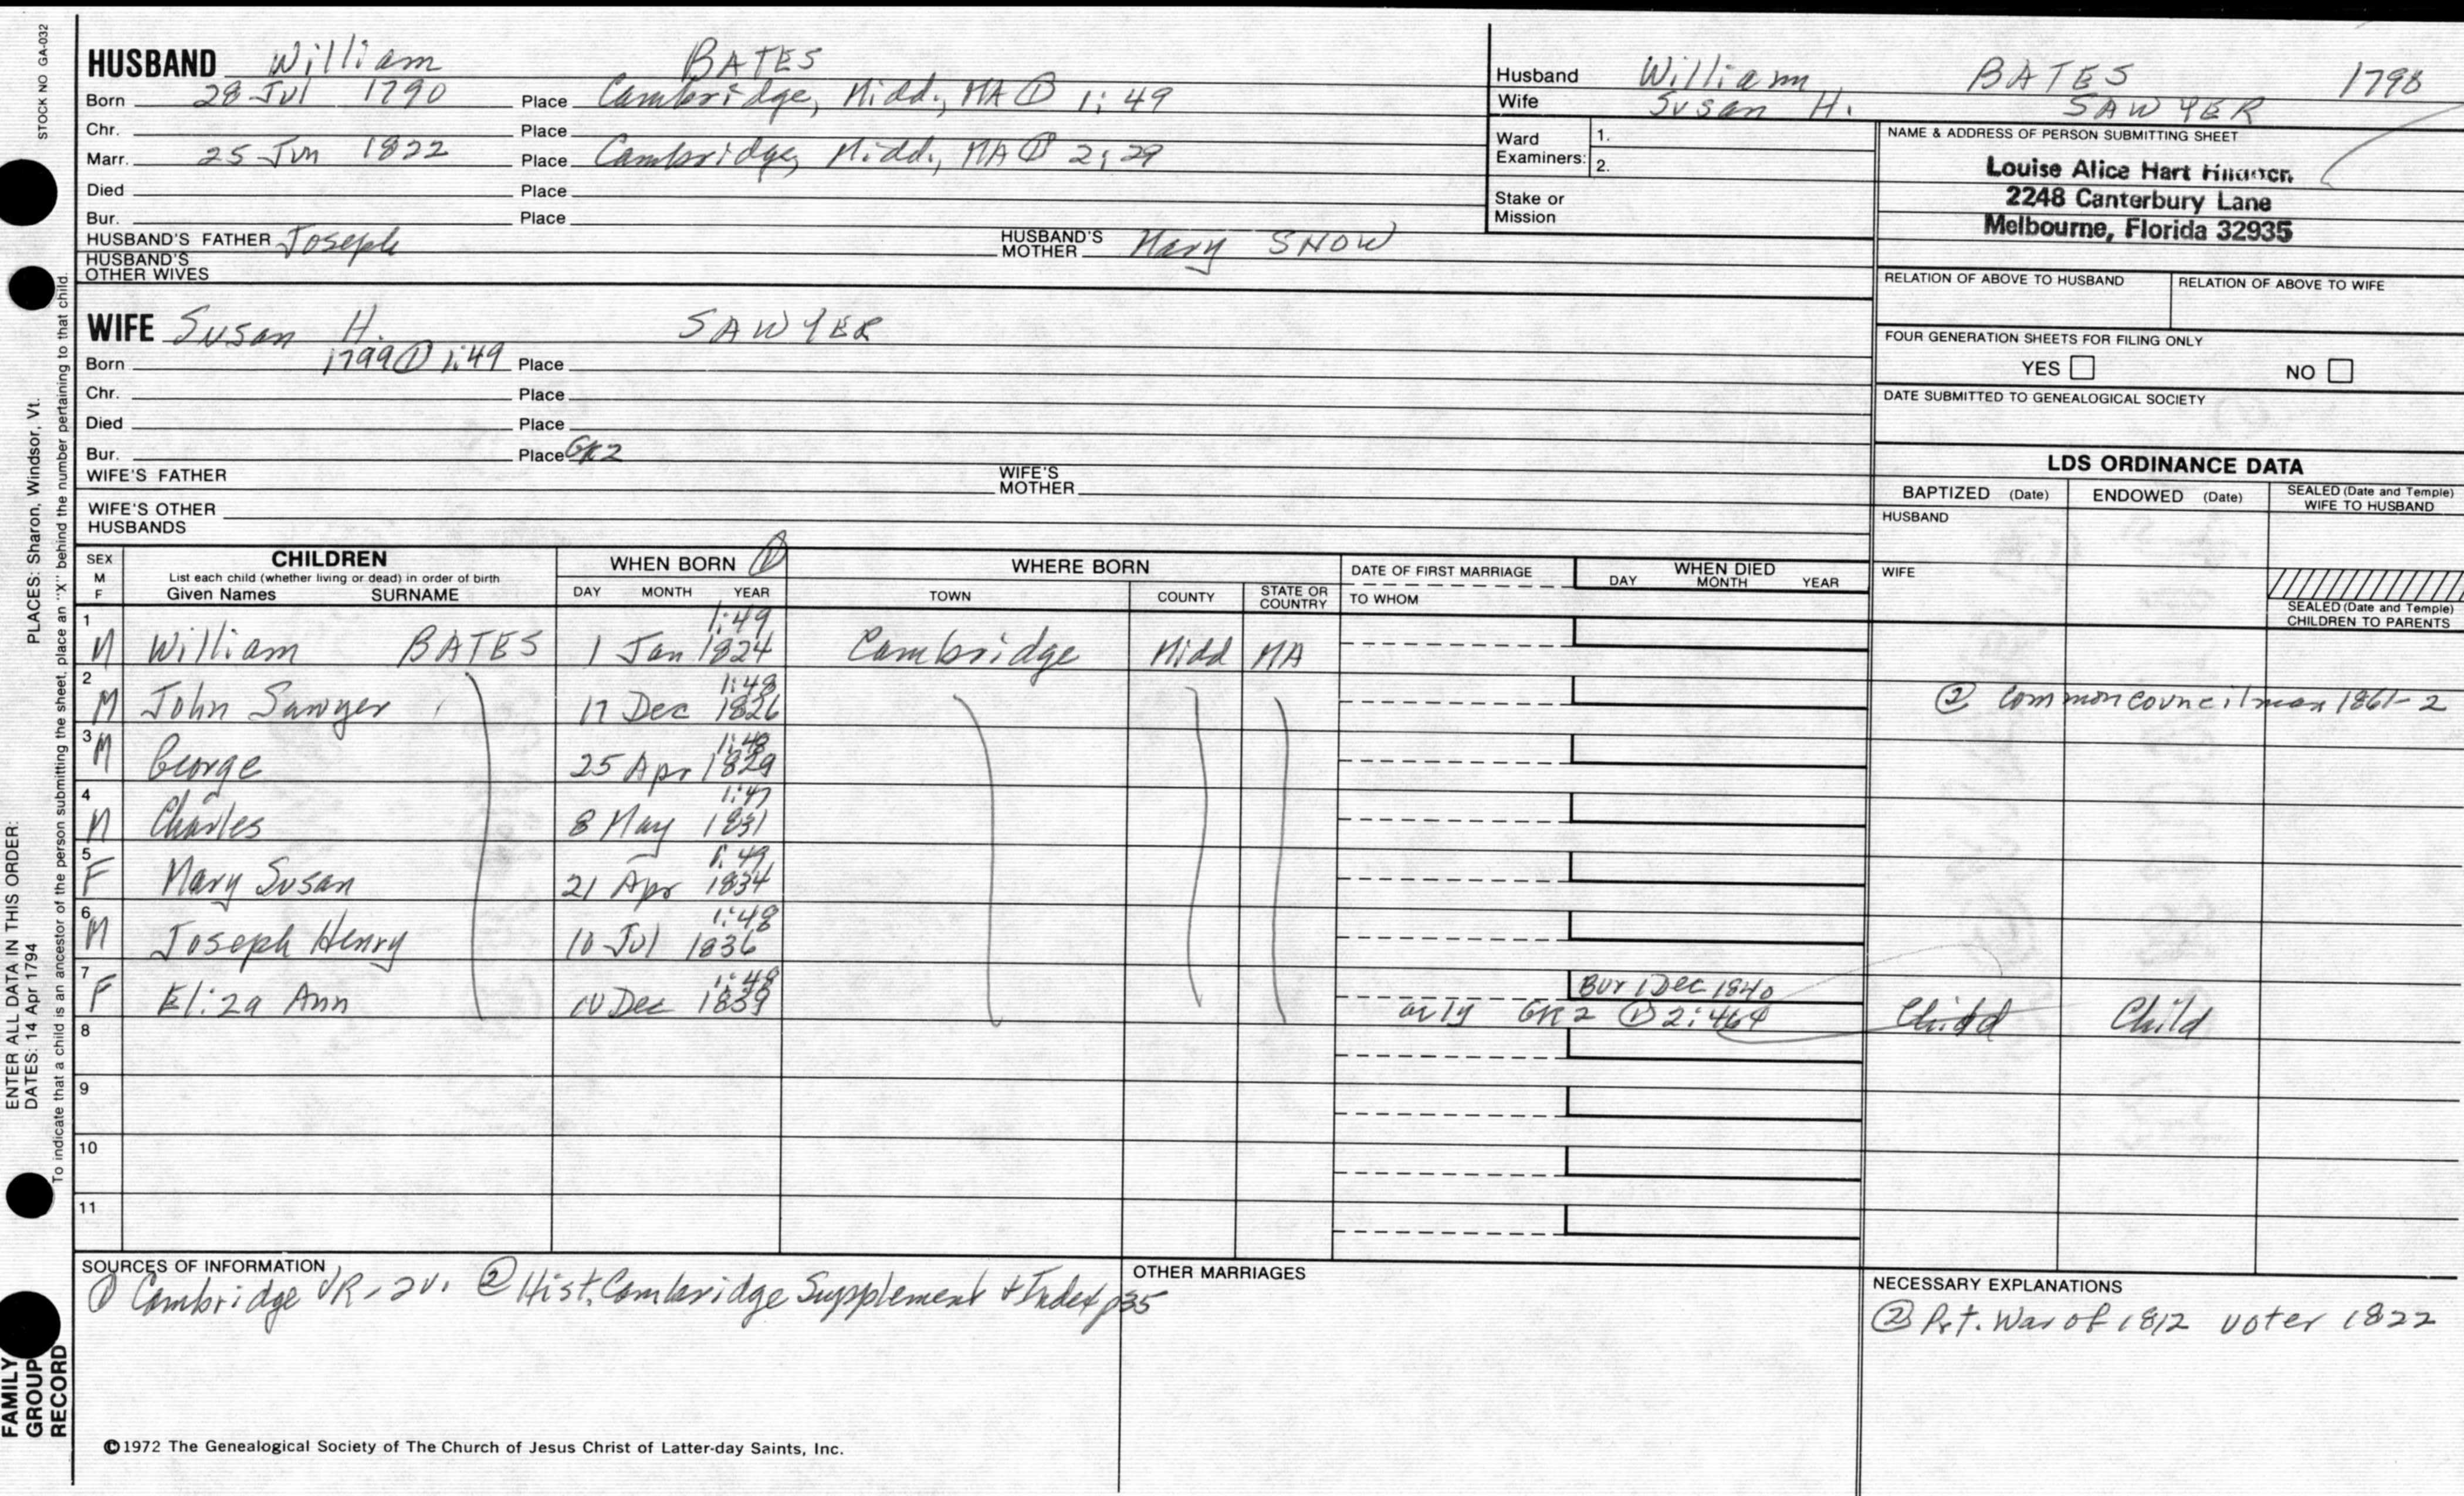 STOCK NO GA-032
HUSBAND William BATES
Born 28 Jul 1790 Place Cambridge, Midd., MA ① 1:49
Chr. Place
Marr. 25 Jun 1822 Place Cambridge, Midd., MA ① 2:29
Died Place
Bur. Place
HUSBAND'S FATHER Joseph HUSBAND'S MOTHER Mary SNOW
HUSBAND'S OTHER WIVES
Husband William BATES 1798
Wife Susan H. SAWYER
Ward Examiners: 1.
2.
Stake or Mission
NAME & ADDRESS OF PERSON SUBMITTING SHEET
Louise Alice Hart
2248 Canterbury Lane
Melbourne, Florida 32935
RELATION OF ABOVE TO HUSBAND RELATION OF ABOVE TO WIFE
FOUR GENERATION SHEETS FOR FILING ONLY
YES NO
DATE SUBMITTED TO GENEALOGICAL SOCIETY
WIFE Susan H. SAWYER
Born 1799 ① 1:49 Place
Chr. Place
Died Place
Bur. Place GR2
WIFE'S FATHER WIFE'S MOTHER
WIFE'S OTHER HUSBANDS
LDS ORDINANCE DATA
BAPTIZED (Date) ENDOWED (Date) SEALED (Date and Temple) WIFE TO HUSBAND
HUSBAND
WIFE
SEALED (Date and Temple) CHILDREN TO PARENTS
SEX M F CHILDREN WHEN BORN ① WHERE BORN DATE OF FIRST MARRIAGE WHEN DIED
List each child (whether living or dead) in order of birth
Given Names SURNAME DAY MONTH YEAR TOWN COUNTY STATE OR COUNTRY TO WHOM DAY MONTH YEAR
1 M William BATES 1 Jan 1824 1:49 Cambridge Midd MA
2 M John Sawyer 17 Dec 1826 1:48 ② Common councilman 1861-2
3 M George 25 Apr 1829 1:48
4 M Charles 8 May 1831 1:47
5 F Mary Susan 21 Apr 1834 1:49
6 M Joseph Henry 10 Jul 1836 1:48
7 F Eliza Ann 10 Dec 1839 1:48 Bur 1 Dec 1840
GR2 ① 2:464 Child Child
8
9
10
11
SOURCES OF INFORMATION
① Cambridge VR-2v. ② Hist. Cambridge Supplement & Index p35
OTHER MARRIAGES
NECESSARY EXPLANATIONS
② Pvt. War of 1812 voter 1822
©1972 The Genealogical Society of The Church of Jesus Christ of Latter-day Saints, Inc.
ENTER ALL DATA IN THIS ORDER:
DATES: 14 Apr 1794
PLACES: Sharon, Windsor, Vt.
To indicate that a child is an ancestor of the person submitting the sheet, place an "X" behind the number pertaining to that child.
FAMILY
GROUP
RECORD